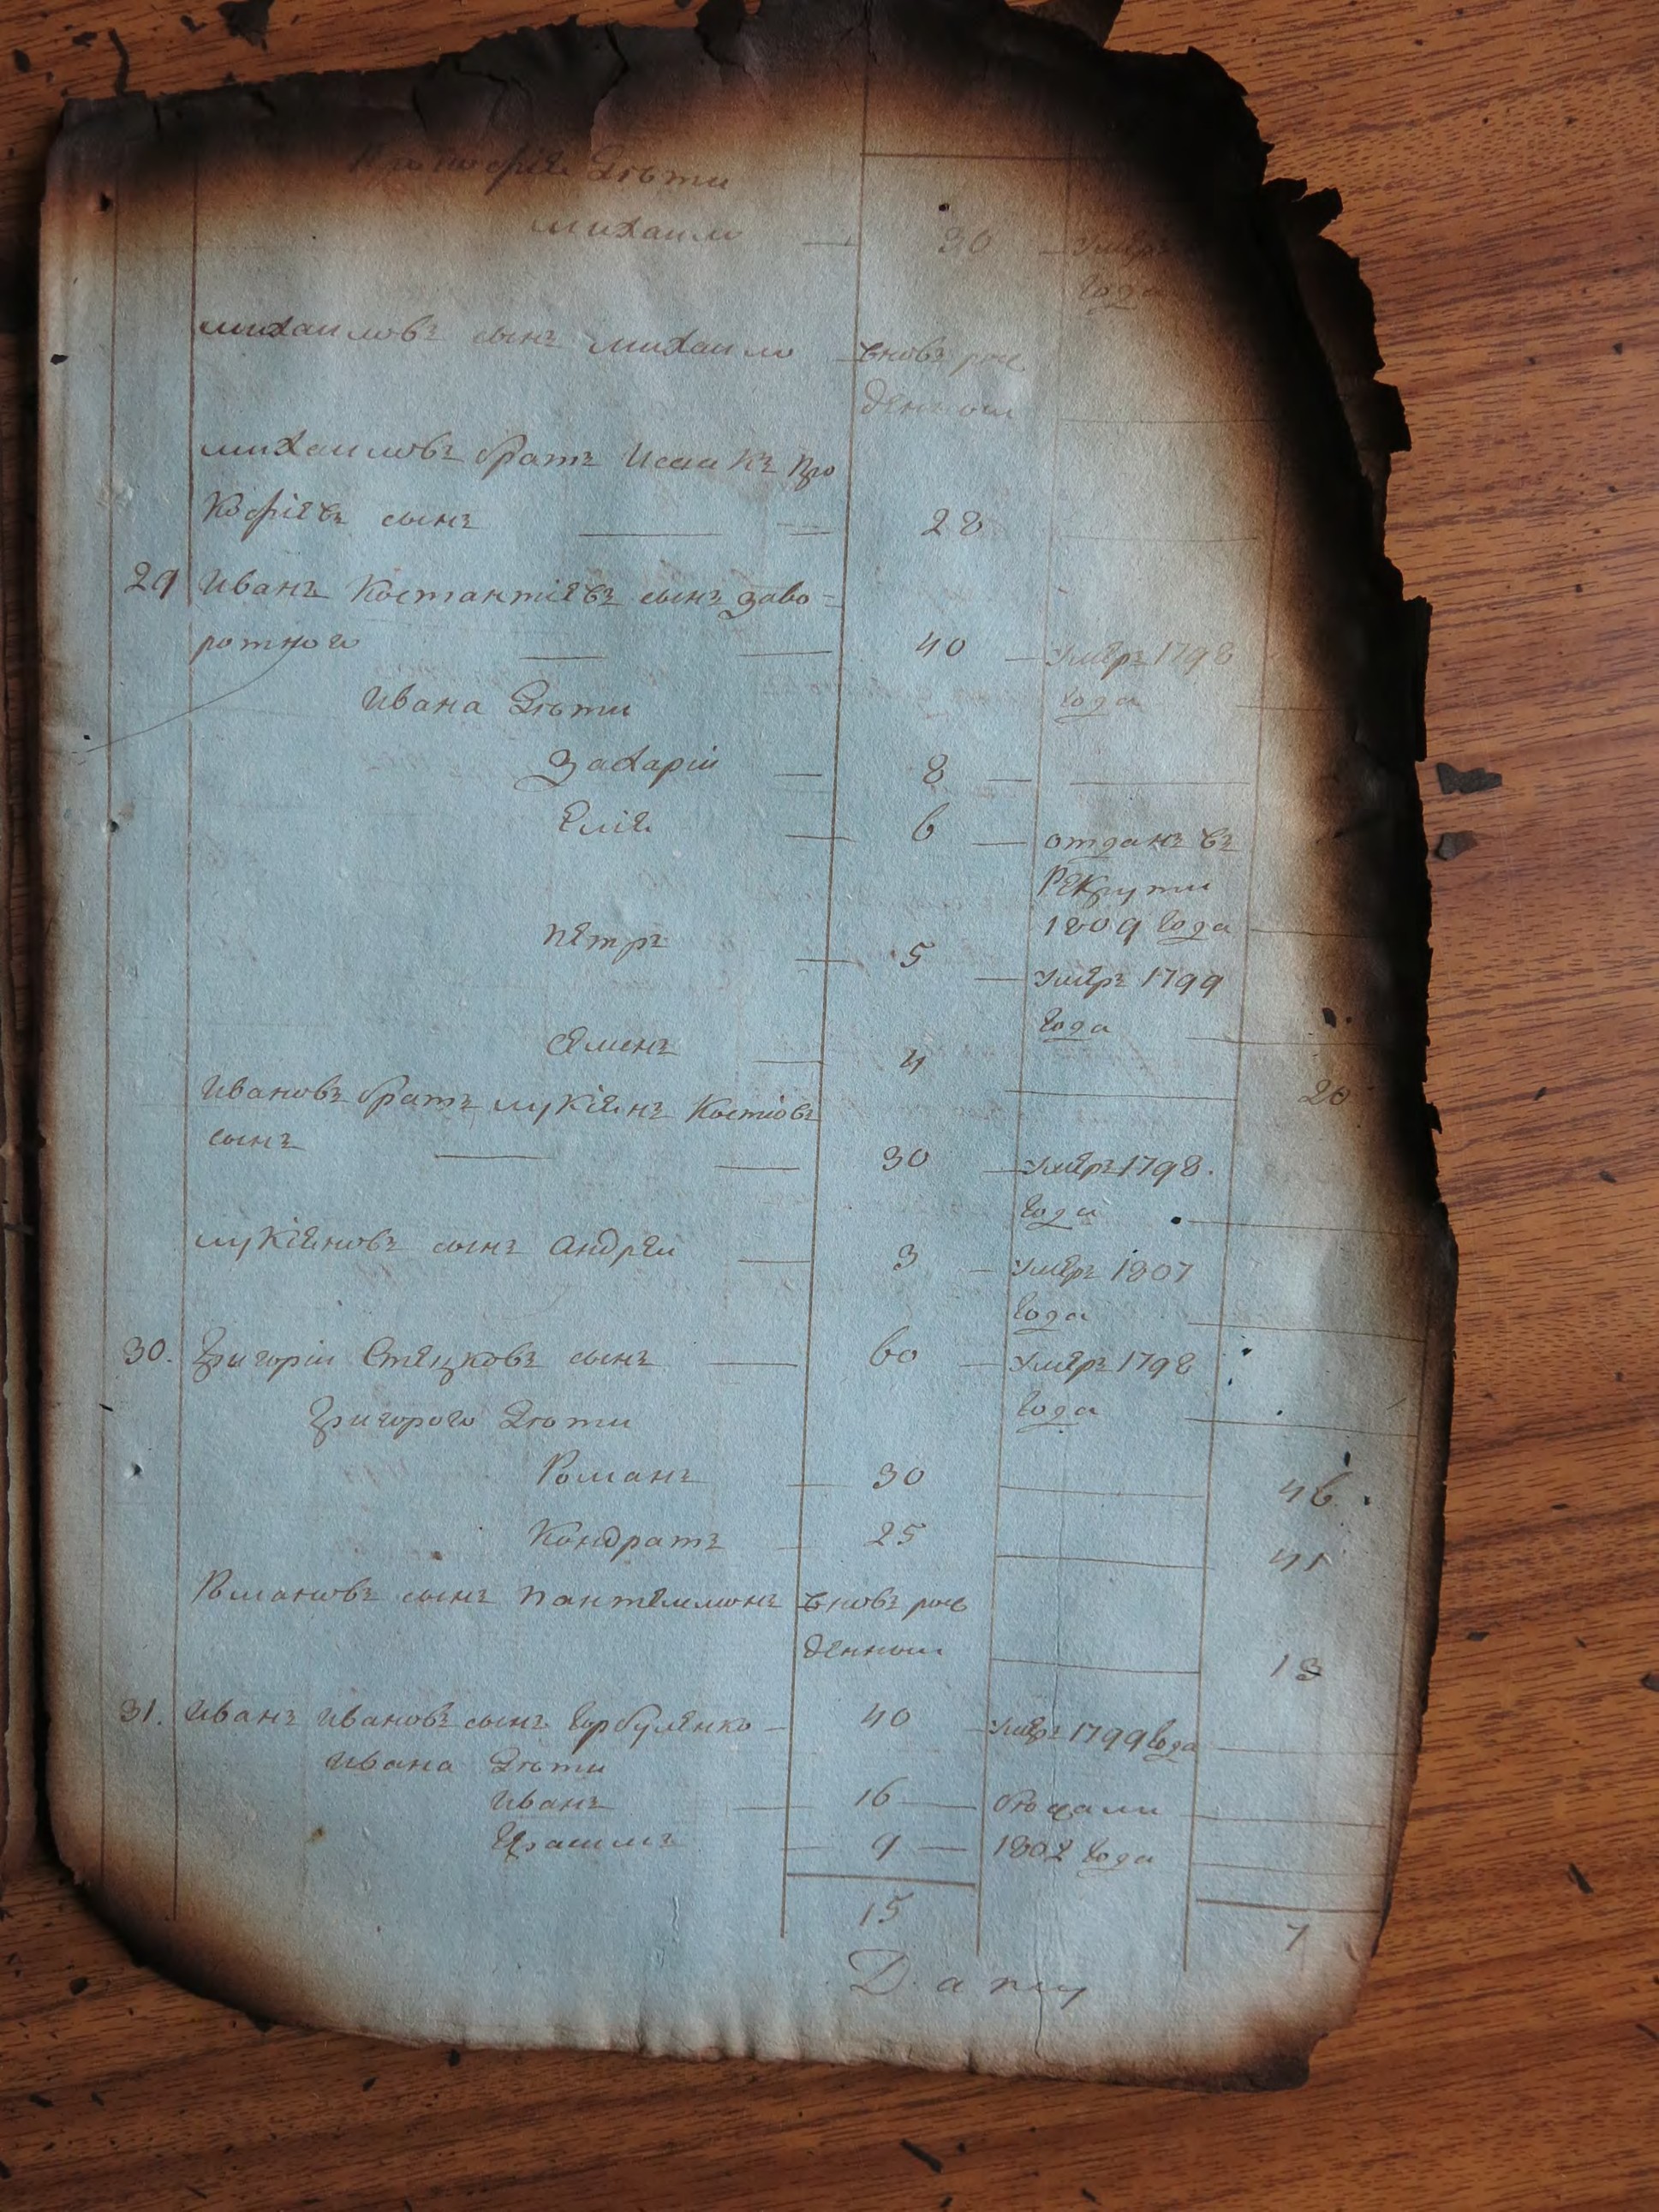 Прокофія дѣти
михаило — 30 — умеръ
года
михаиловъ сынъ михаило вновь рож
денной
михаиловъ братъ Исаакъ про
кофіевъ сынъ — 28
29 Иванъ Костантіевъ сынъ заво=
ротного — 40 — умеръ 1798
Ивана дѣти года
Захарій — 8 —
Елія — 6 — отданъ въ
рекрути
1809 года
петръ — 5 — умеръ 1799
года
семенъ — 4 20
Ивановъ братъ лукіянъ Костіовъ
сынъ — 30 — умеръ 1798.
года
лукіяновъ сынъ андрей — 3 — умеръ 1807
года
30. Григорій Стецковъ сынъ — 60 — умеръ 1798
Григорого дѣти года
Романъ — 30 46.
Кондратъ — 25 41
Романовъ сынъ пантелимонъ вновь рож
денной 13
31. Иванъ Ивановъ сынъ Горбуленко — 40 — умеръ 1799 года
Ивана дѣти
Иванъ — 16 — бежали
Герасимъ — 9 — 1802 года
15 7